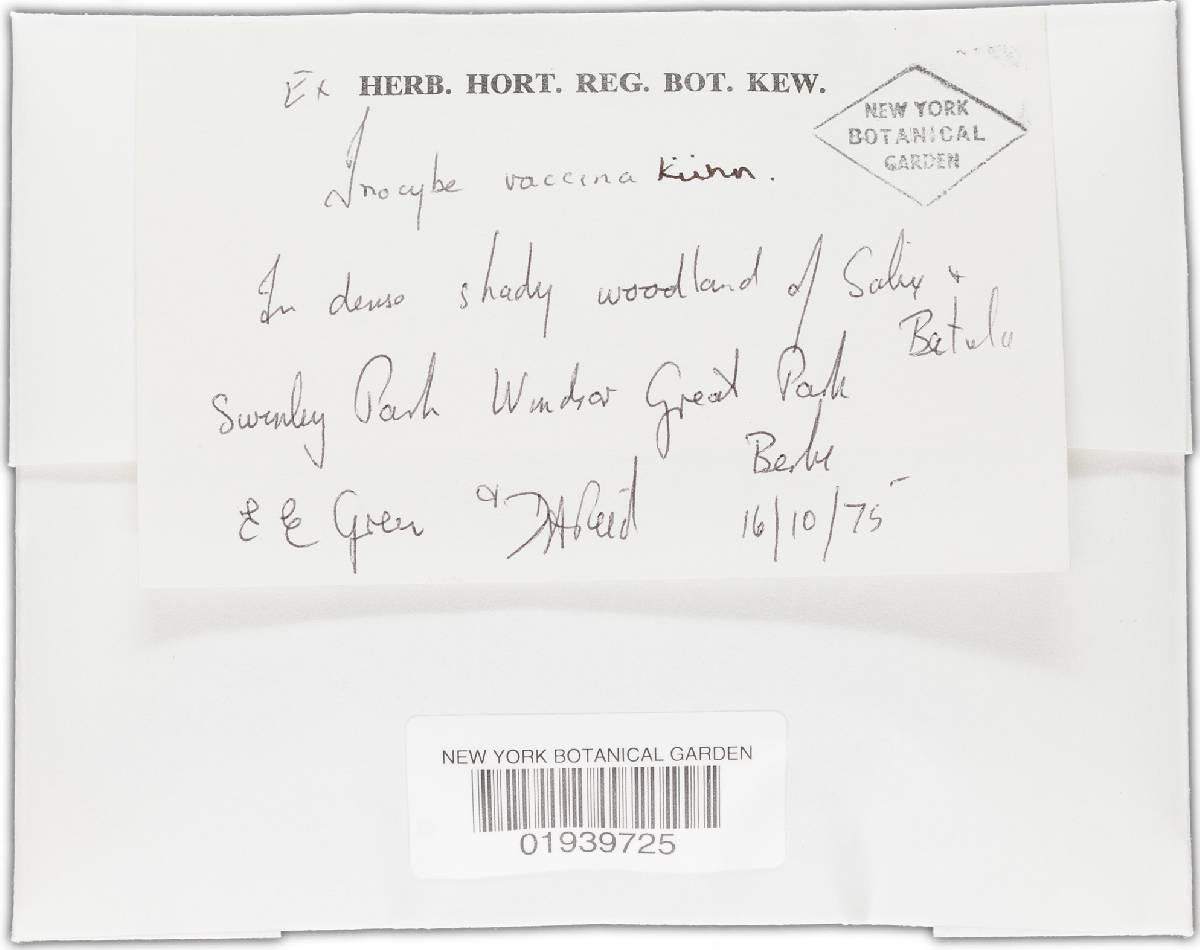 Ex HERB. HORT. REG. BOT. KEW.
NEW YORK
BOTANICAL
GARDEN
Inocybe vaccina Kühn.
In dense shady woodland of Salix &
Betula
Swinley Park Windsor Great Park
Berks
E E Green & D A Reid 16/10/75
NEW YORK BOTANICAL GARDEN
01939725